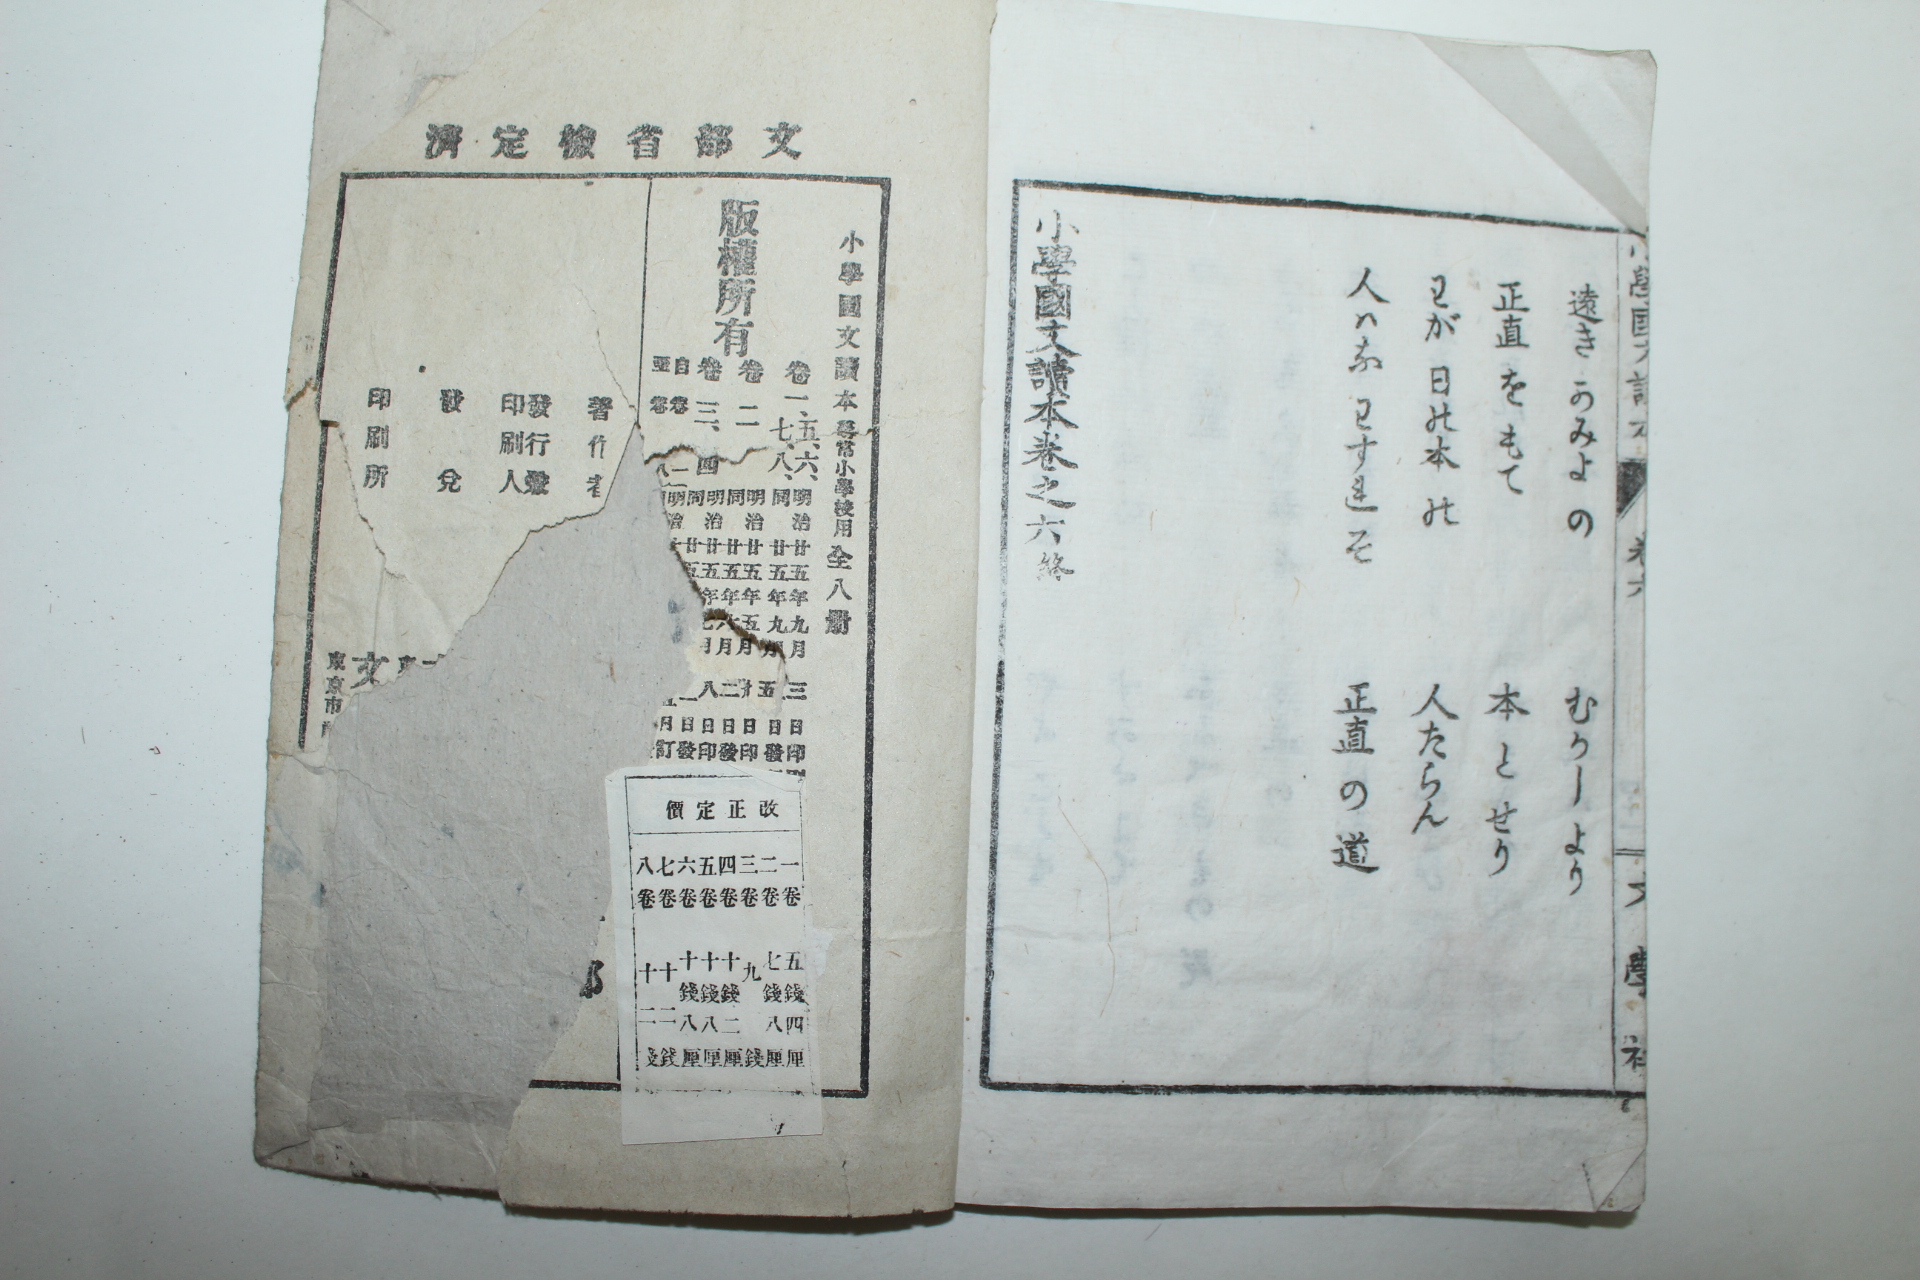 小學國文讀本
卷六
文學社
遠きかみよの　むかしより
正直をもて　本とせり
わが日の本の　人たらん
人はなわすれそ　正直の道
小學國文讀本卷之六終
文部省檢定濟
小學國文讀本 尋常小學校用 全八冊
版權所有
卷一、五、六、 明治廿五年九月三日印
七、八、 同廿五年九月五日發
卷二 明治廿五年五月廿日印
同廿五年六月二日發
卷三、四 明治廿五年七月八日印
著作者
發行兼
印刷人
發兌
印刷所
東京市
文
改正定價
一卷 五錢四厘
二卷 七錢八厘
三卷 九錢
四卷 十錢二厘
五卷 十錢八厘
六卷 十錢八厘
七卷 十二錢
八卷 十二錢